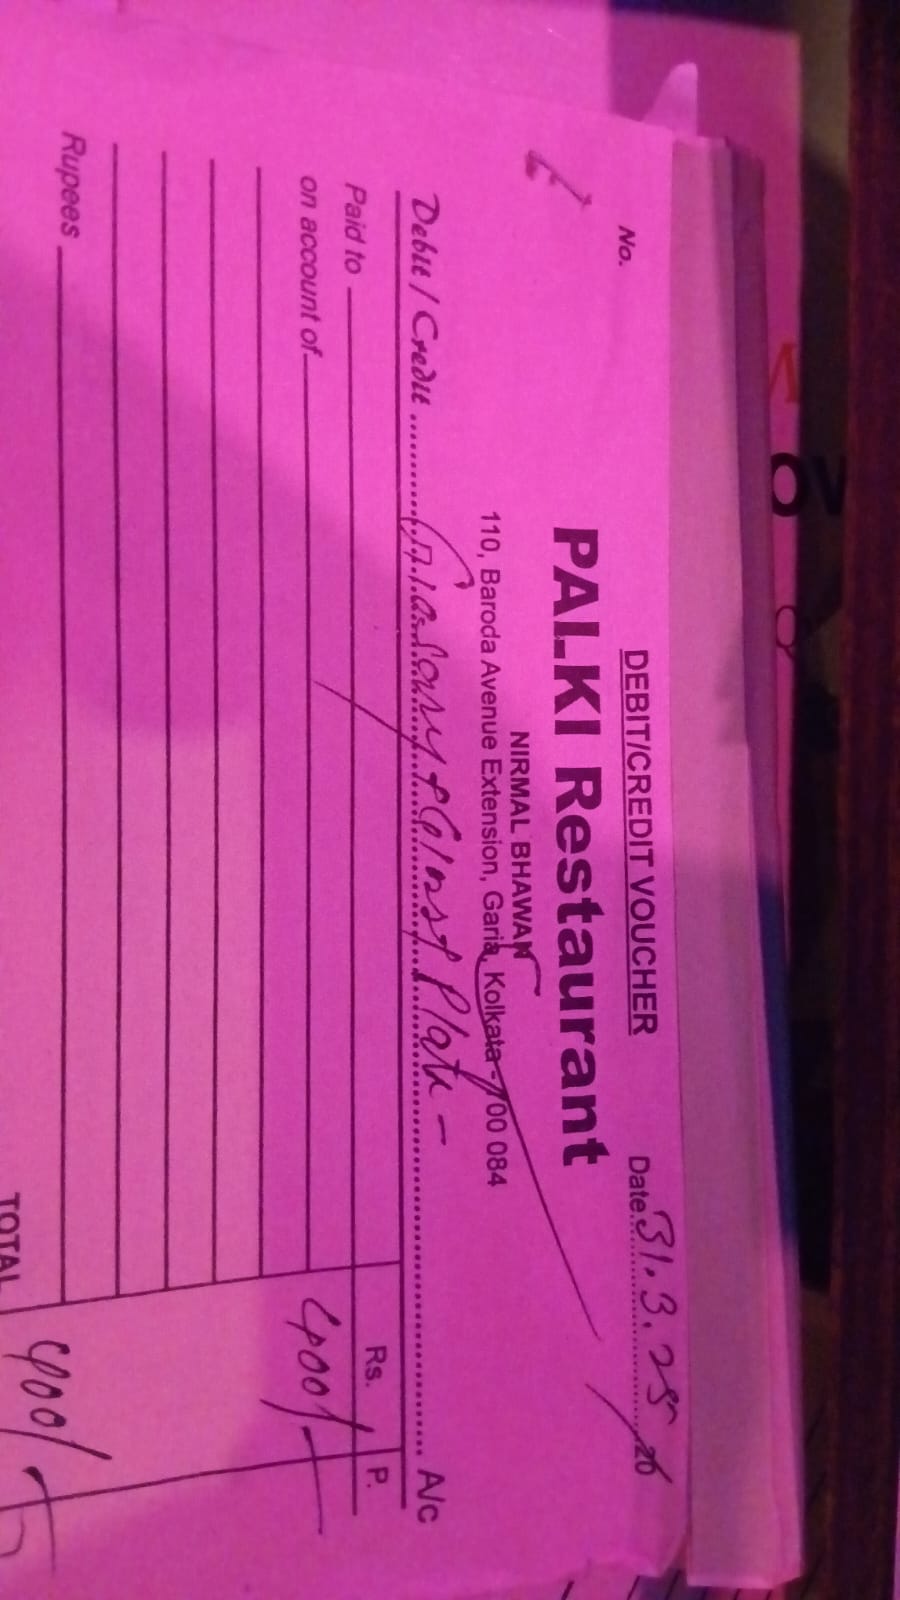 DEBIT/CREDIT VOUCHER
No.
Date 31.3.25 20
PALKI Restaurant
NIRMAL BHAWAN
110, Baroda Avenue Extension, Garia, Kolkata - 700 084
Debit / Credit Plate - A/c
Rs. P.
Paid to
on account of 400/-
Rupees
TOTAL 400/-